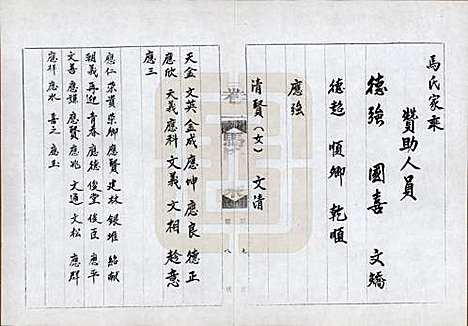 馬氏家乘
贊助人員
德強 國喜 文矯
德超 順卿 乾順
應強
清賢（女） 文清
天金 文英 金成 應坤 應良 德正
應欣 天義 應科 文義 文相 趁意
應三
應仁 榮貴 榮卿 應賢 建林 銀堆 紹猷
朝義 再迎 青春 應德 俊堂 俊臣 應平
文善 應謀 應賢 應兆 文通 文松 應群
應祥 應水 喜之 應玉